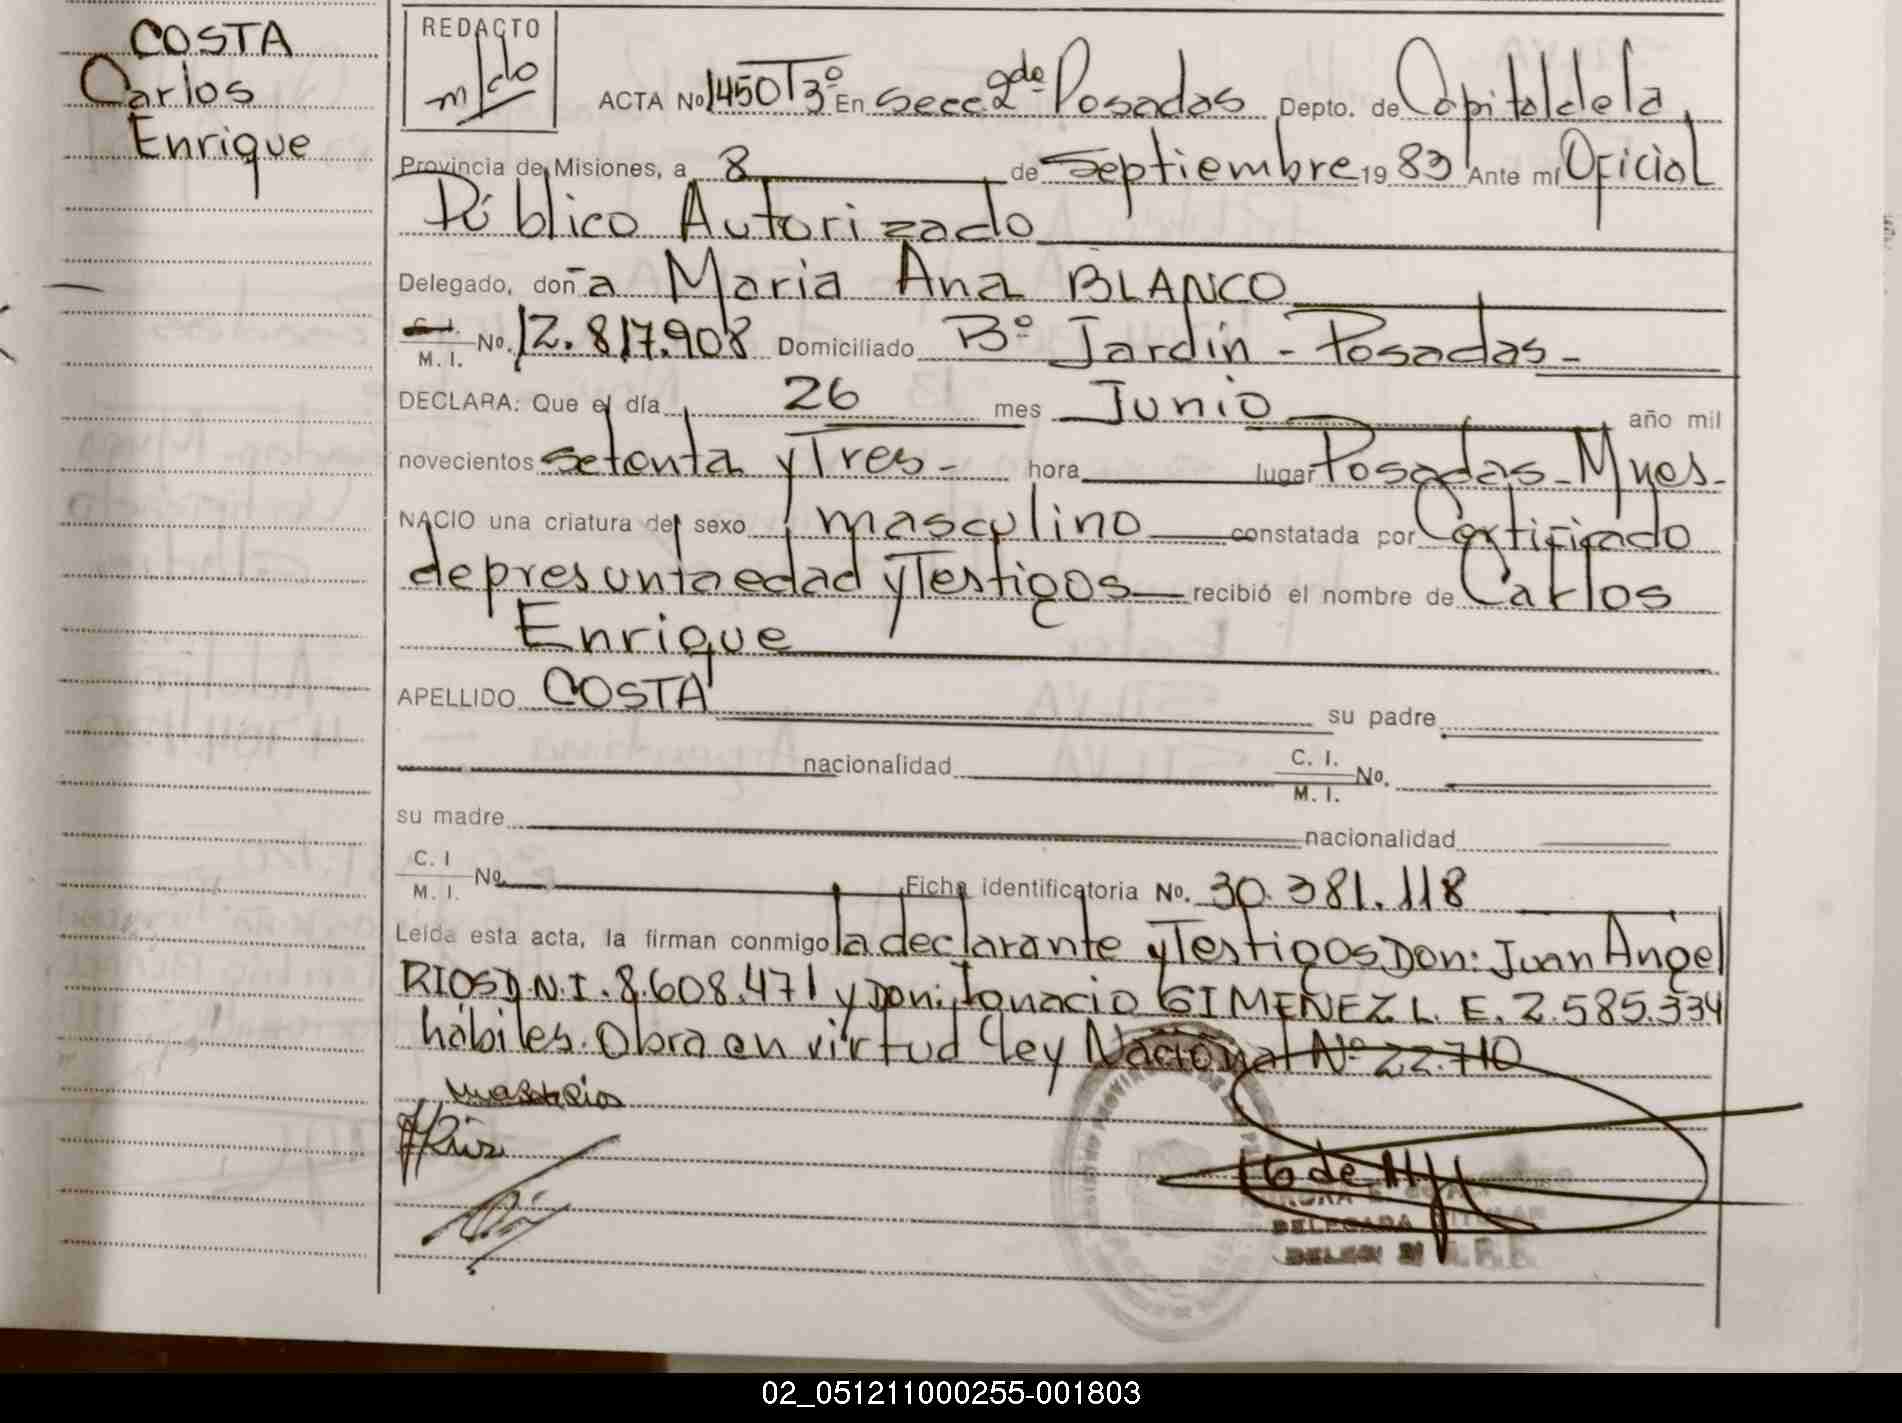 COSTA
Carlos
Enrique
REDACTO
ACTA No 1450 T 3º En Secc. 2da Posadas Depto. de Capital de la
Provincia de Misiones, a 8 de Septiembre 19 83 Ante mí Oficial
Público Autorizado
Delegado, doña María Ana BLANCO
C. I. M. I. No. 12.817.908 Domiciliado Bº Jardín - Posadas -
DECLARA: Que el día 26 mes Junio año mil
novecientos setenta y Tres - hora lugar Posadas - Mnes -
NACIO una criatura del sexo masculino constatada por Certificado
de presunta edad y Testigos recibió el nombre de Carlos
Enrique
APELLIDO COSTA su padre
nacionalidad C. I. M. I. No.
su madre nacionalidad
C. I M. I. No. Ficha identificatoria No. 30.381.118
Leída esta acta, la firman conmigo la declarante y Testigos Don: Juan Angel
RIOS D.N.I. 8.608.471 y Don: Ignacio GIMENEZ L. E. 2.585.334
hábiles. Obra en virtud ley Nacional Nº 22.710
DELEGADA TITULAR
02_051211000255-001803